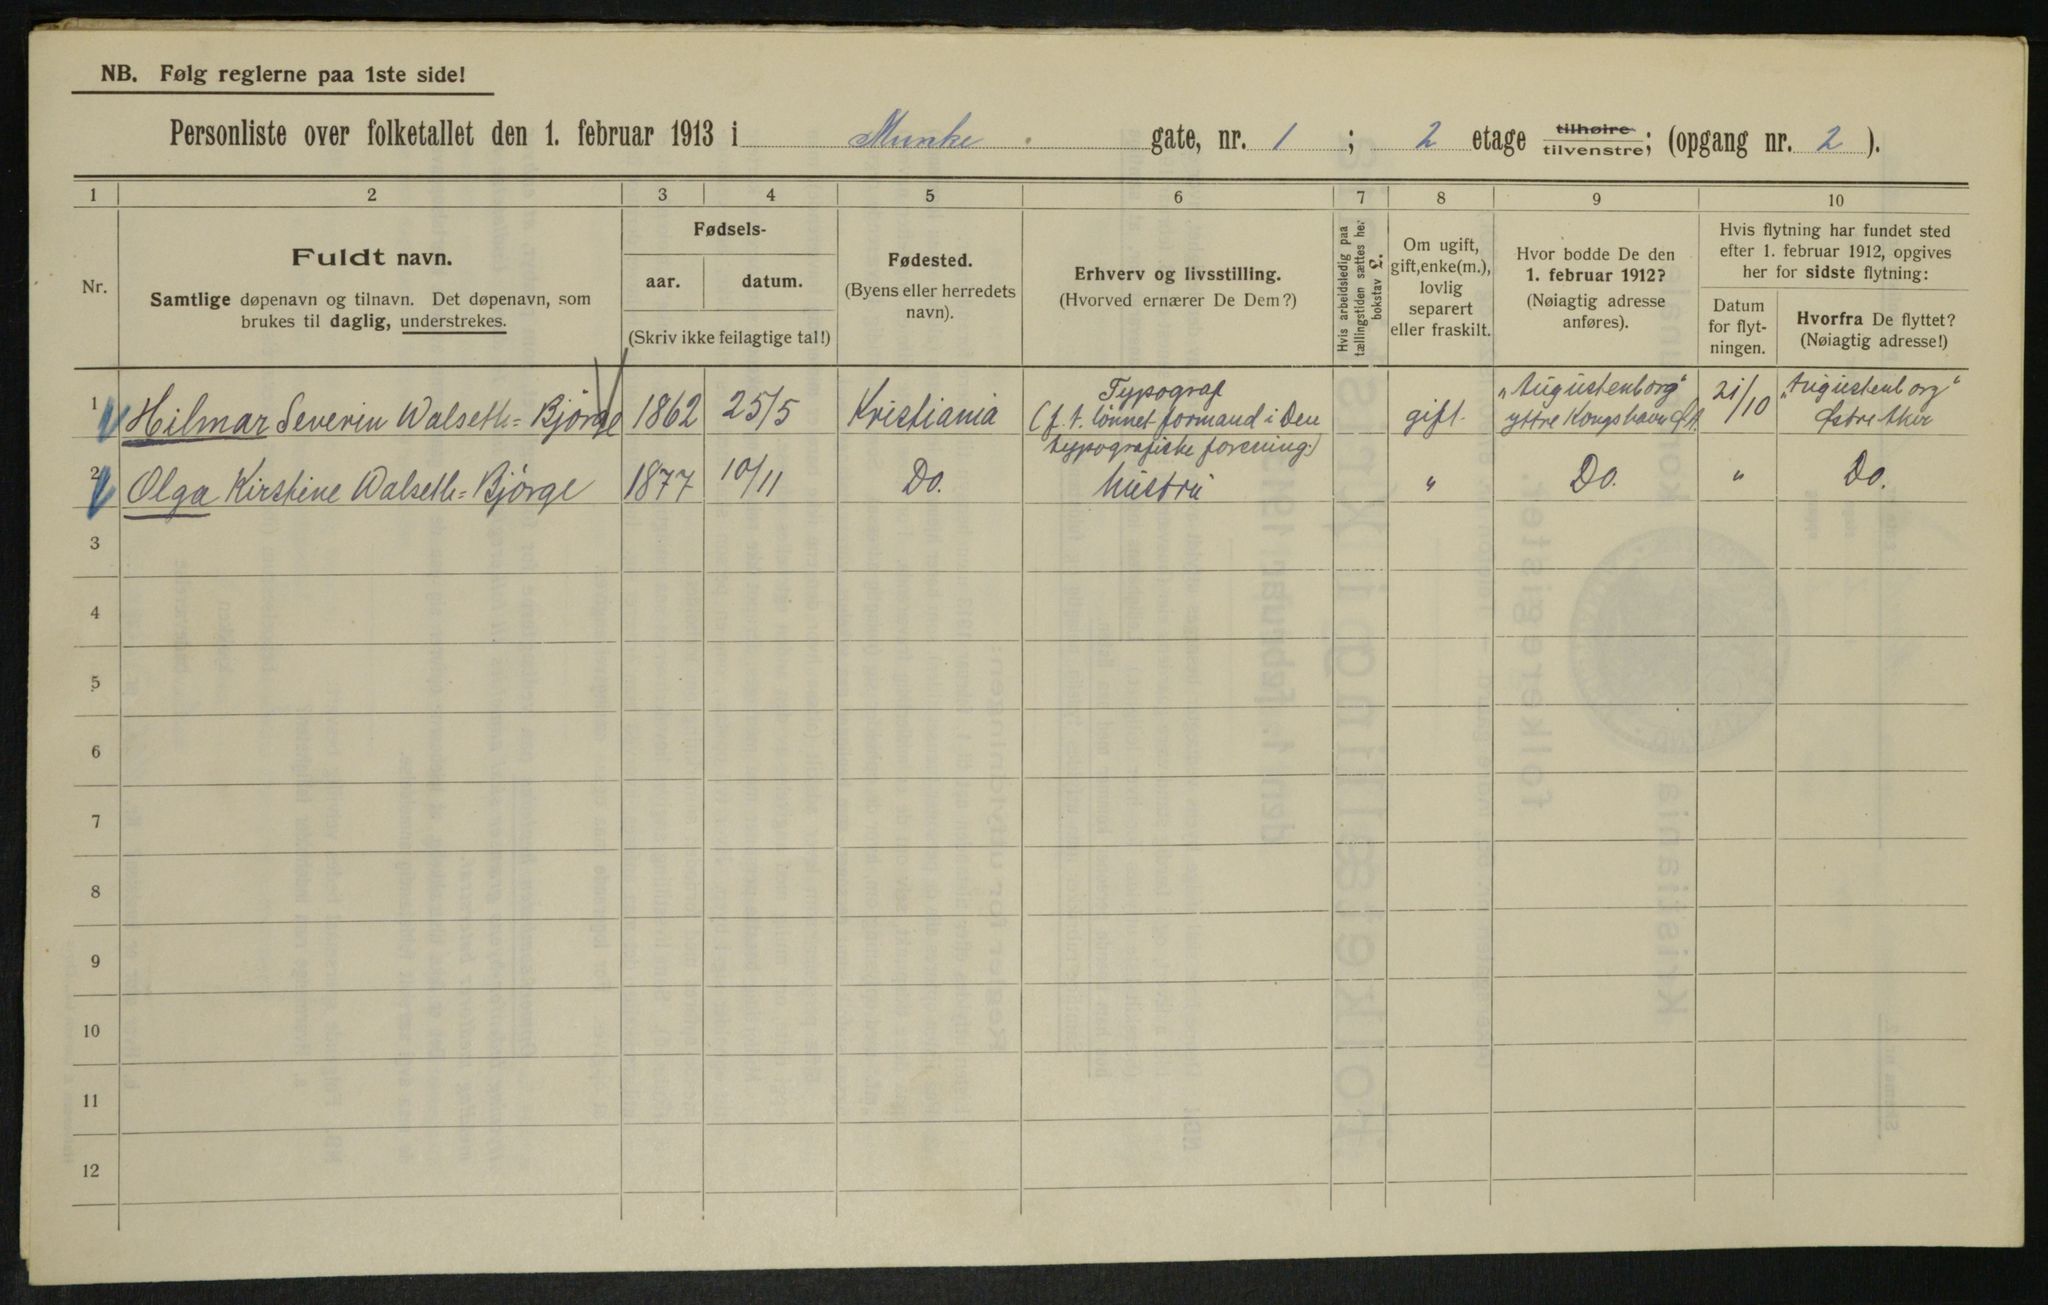 NB. Følg reglerne paa 1ste side!
Personliste over folketallet den 1. februar 1913 i Munke gate, nr. 1 ; 2 etage tilhøire tilvenstre; (opgang nr. 2 ).
1 2 3 4 5 6 7 8 9 10
Nr.
Fuldt navn.
Samtlige døpenavn og tilnavn. Det døpenavn, som
brukes til daglig, understrekes.
Fødsels-
aar. datum.
(Skriv ikke feilagtige tal!)
Fødested.
(Byens eller herredets
navn).
Erhverv og livsstilling.
(Hvorved ernærer De Dem?)
Hvis arbeidsledig paa
tællingstiden sættes her
bokstav L.
Om ugift,
gift, enke(m.),
lovlig
separert
eller fraskilt.
Hvor bodde De den
1. februar 1912?
(Nøiagtig adresse
anføres).
Hvis flytning har fundet sted
efter 1. februar 1912, opgives
her for sidste flytning:
Datum
for flyt-
ningen.
Hvorfra De flyttet?
(Nøiagtig adresse!)
1 Hilmar Severin Walseth=Bjørge 1862 25/5 Kristiania Typograf
(f. t. lønnet formand i Den
typografiske forening.) gift. „Augustenborg"
yttre Kongshavn 21/10 „Augustenborg"
Østre Aker
2 Olga Kirstine Walseth=Bjørge 1877 10/11 Do. hustru " Do. " Do.
3
4
5
6
7
8
9
10
11
12